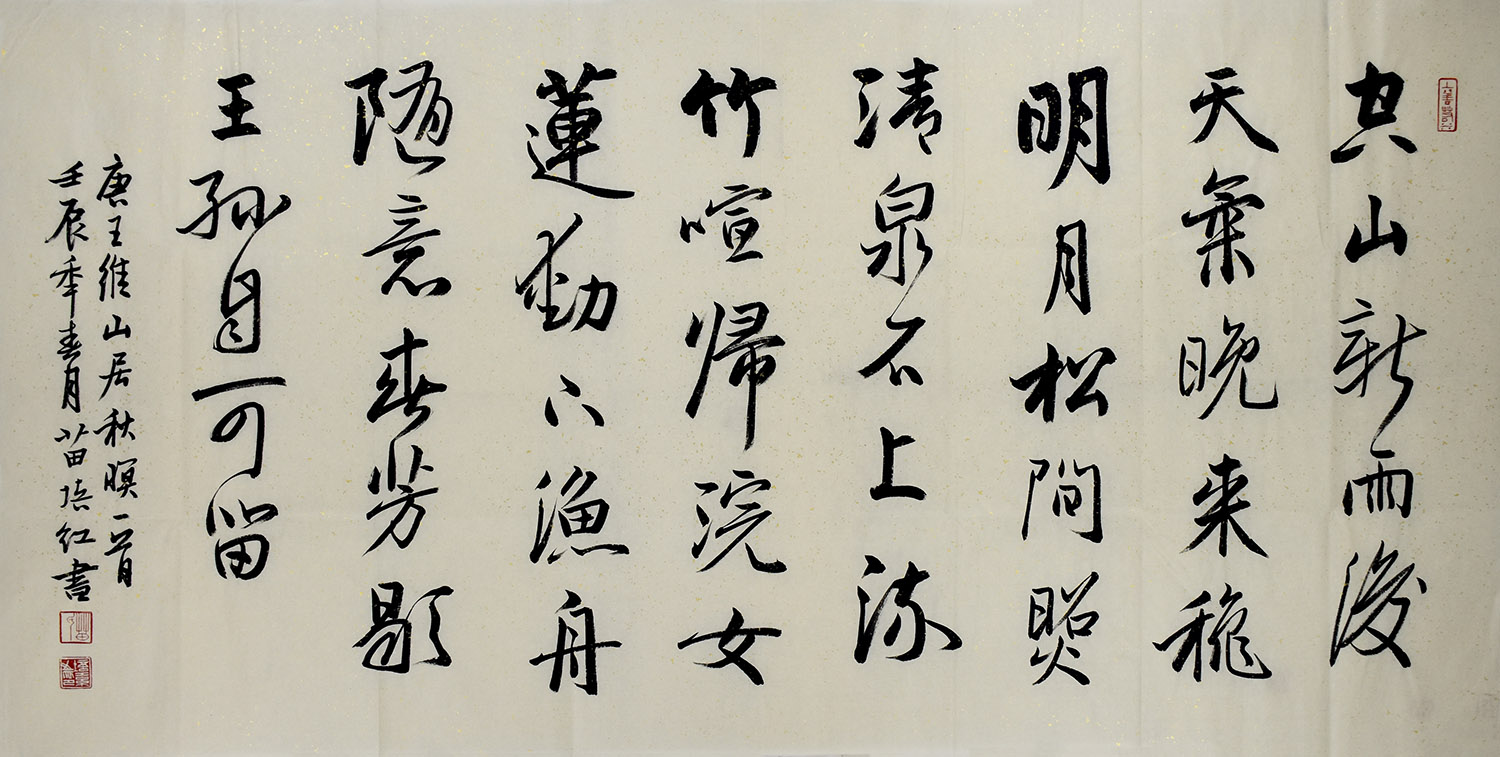 空山新雨後
天氣晚來穐
明月松間照
清泉石上流
竹喧帰浣女
蓮動下漁舟
随意春芳歇
王孫自可留
唐王維山居秋暝一首
壬辰年春月苗培红書